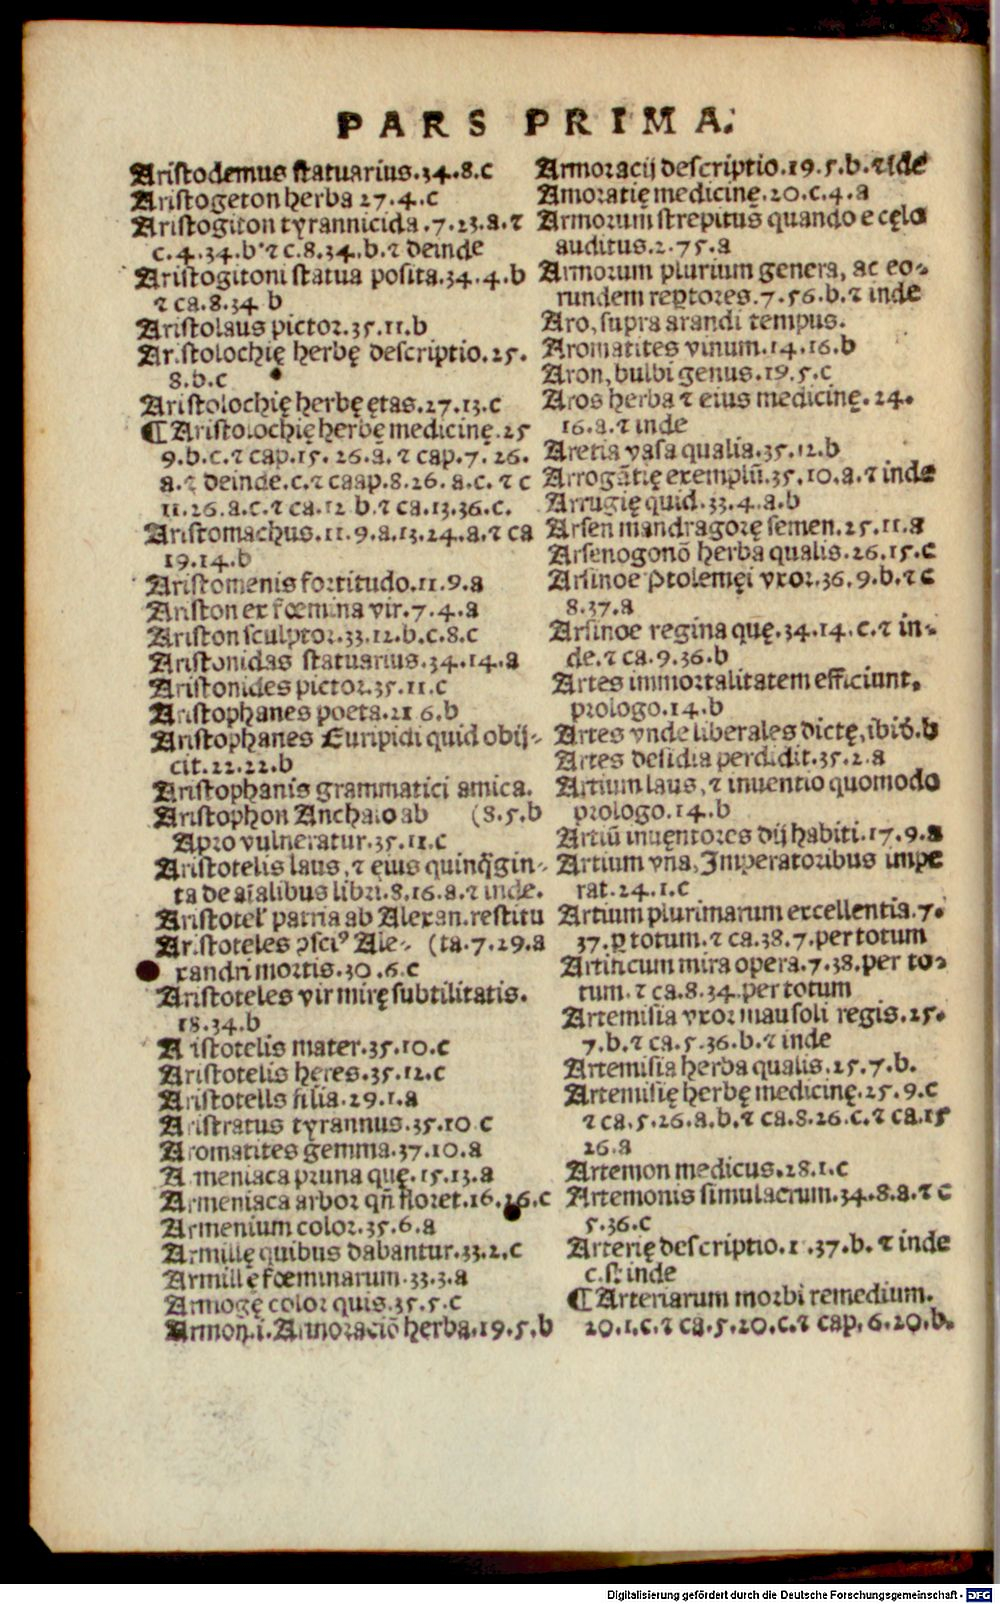 PARS PRIMA.
Aristodemus statuarius.34.8.c
Aristogeton herba 27.4.c
Aristogiton tyrannicida.7.23.a.⁊
c.4.34.b.⁊ c.8.34.b.⁊ deinde
Aristogitoni statua posita.34.4.b
⁊ ca.8.34 b
Aristolaus pictor.35.11.b
Ar.stolochię herbę descriptio.25.
8.b.c
Aristolochię herbę ętas.27.13.c
¶ Aristolochię herbę medicinę.25
9.b.c.⁊ cap.15. 26.a. ⁊ cap.7. 26.
a.⁊ deinde.c.⁊ caap.8.26. a.c. ⁊ c
11.26.a.c.⁊ ca.12 b.⁊ ca.13.36.c.
Aristomachus.11.9.a.13.24.a.⁊ ca
19.14.b
Aristomenis fortitudo.11.9.a
Ariston ex fœmina vir.7.4.a
Ariston sculptor.33.12.b.c.8.c
Aristonidas statuarius.34.14.a
Aristonides pictor.35.11.c
Aristophanes poeta.21 6.b
Aristophanes Euripidi quid obij-
cit.22.22.b
Aristophanis grammatici amica.
Aristophon Anchaio ab (8.5.b
Apro vulneratur.35.11.c
Aristotelis laus, ⁊ ęius quinq̃gin-
ta de aīalibus libri.8.16.a.⁊ inde.
Aristotel' patria ab Alexan.restitu
Ar.stoteles ꝯsciꝰ Ale- (ta.7.29.a
xandri mortis.30.6.c
Aristoteles vir mirę subtilitatis.
18.34.b
A istotelis mater.35.10.c
Aristotelis heres.35.12.c
Aristotells filia.29.1.a
Aristratus tyrannus.35.10 c
Aromatites gemma.37.10.a
A.meniaca pruna quę.15.13.a
Armeniaca arbor qñ floret.16.26.c
Armenium color.35.6.a
Armillę quibus dabantur.33.2.c
Armillę fœminarum.33.3.a
Armogę color quis.35.5.c
Armon.i.Armoraciō herba.19.5.b
Armoracij descriptio.19.5.b.⁊ idē
Amoratię medicinę.20.c.4.a
Armorum strepitus quando e cęlo
auditus.2.75.a
Armorum plurium genera, ac eo-
rundem reꝑtores.7.56.b.⁊ inde
Aro, supra arandi tempus.
Aromatites vinum.14.16.b
Aron, bulbi genus.19.5.c
Aros herba ⁊ eius medicinę.24.
16.a.⁊ inde
Aretia vasa qualia.35.12.b
Arrogātię exemplū.35.10.a.⁊ inde
Arrugię quid.33.4.a.b
Arsen mandragorę semen.25.11.a
Arsenogonō herba qualis.26.15.c
Arsinoe Ptolemęi vxor.36.9.b.⁊ c
8.37.a
Arsinoe regina quę.34.14.c.⁊ in-
de.⁊ ca.9.36.b
Artes immortalitatem efficiunt.
prologo.14.b
Artes vnde liberales dictę, ibid.b
Artes desidia perdidit.35.2.a
Artium laus, ⁊ inuentio quomodo
prologo.14.b
Artiū inuentores dij habiti.17.9.a
Artium vna, Imperatoribus impe
rat.24.1.c
Artium plurimarum excellentia.7.
37.ꝑ totum.⁊ ca.38.7.per totum
Artificum mira opera.7.38.per to-
tum.⁊ ca.8.34.per totum
Artemisia vxor mausoli regis.25.
7.b.⁊ ca.5.36.b.⁊ inde
Artemisia herba qualis.25.7.b.
Artemisię herbę medicinę.25.9.c
⁊ ca.5.26.a.b.⁊ ca.8.26.c.⁊ ca.15
26.a
Artemon medicus.28.1.c
Artemonis simulacrum.34.8.a.⁊ c
5.36.c
Arterię descriptio.1 .37.b. ⁊ inde
inde
¶ Arteriarum morbi remedium.
20.1.c.⁊ ca.5.20.c.⁊ cap.6.20.b.
Digitalisierung gefördert durch die Deutsche Forschungsgemeinschaft - DFG